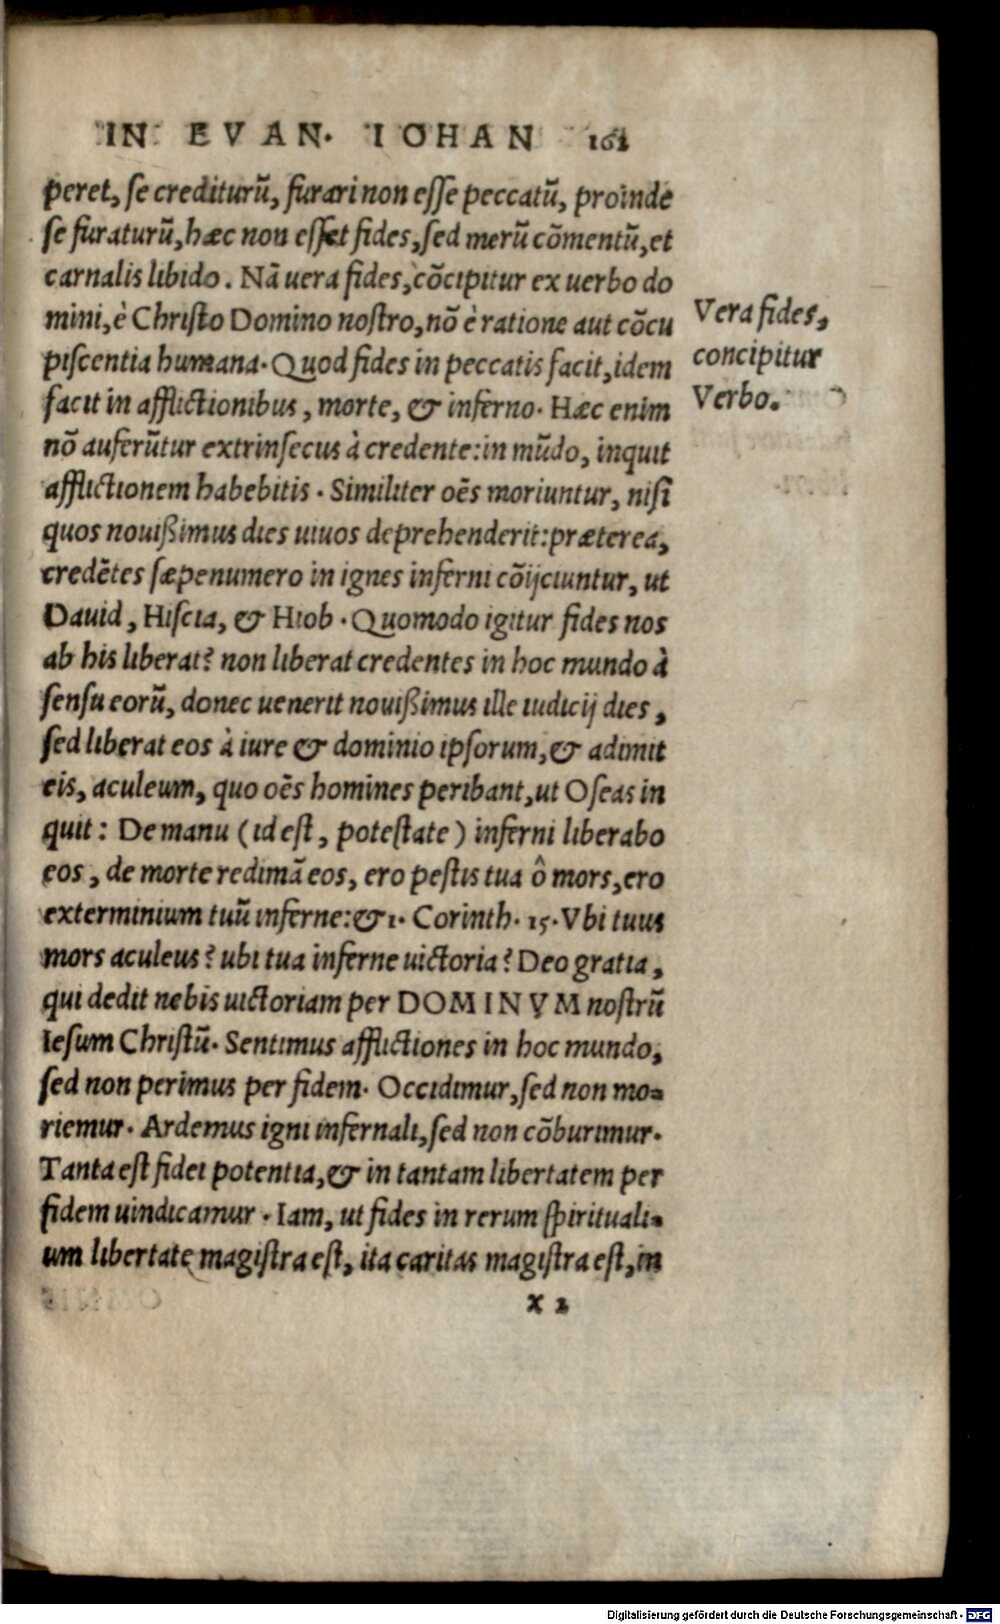 IN EVAN. IOHAN 162
peret, se crediturũ, furari non esse peccatũ, proinde
se furaturũ, hæc non esset fides, sed merũ cõmentũ, et
carnalis libido. Nã uera fides, cõcipitur ex uerbo do
mini, è Christo Domino nostro, nõ è ratione aut cõcu
piscentia humana. Quod fides in peccatis facit, idem
facit in afflictionibus, morte, & inferno. Hæc enim
nõ auferũtur extrinsecus à credente: in mũdo, inquit
afflictionem habebitis. Similiter oẽs moriuntur, nisi
quos nouißimus dies uiuos deprehenderit: præterea,
credẽtes sæpenumero in ignes inferni cõijciuntur, ut
Dauid, Hiscia, & Hiob. Quomodo igitur fides nos
ab his liberat? non liberat credentes in hoc mundo à
sensu eorũ, donec uenerit nouißimus ille iudicij dies,
sed liberat eos à iure & dominio ipsorum, & adimit
eis, aculeum, quo oẽs homines peribant, ut Oseas in
quit: De manu (id est, potestate) inferni liberabo
eos, de morte redimã eos, ero pestis tua ô mors, ero
exterminium tuũ inferne: & 1. Corinth. 15. Vbi tuus
mors aculeus? ubi tua inferne uictoria? Deo gratia,
qui dedit nobis uictoriam per DOMINVM nostrũ
Iesum Christũ. Sentimus afflictiones in hoc mundo,
sed non perimus per fidem. Occidimur, sed non mo-
riemur. Ardemus igni infernali, sed non cõburimur.
Tanta est fidei potentia, & in tantam libertatem per
fidem uindicamur. Iam, ut fides in rerum spirituali-
um libertate magistra est, ita caritas magistra est, in
X 2
Vera fides,
concipitur
Verbo.
Digitalisierung gefördert durch die Deutsche Forschungsgemeinschaft - DFG